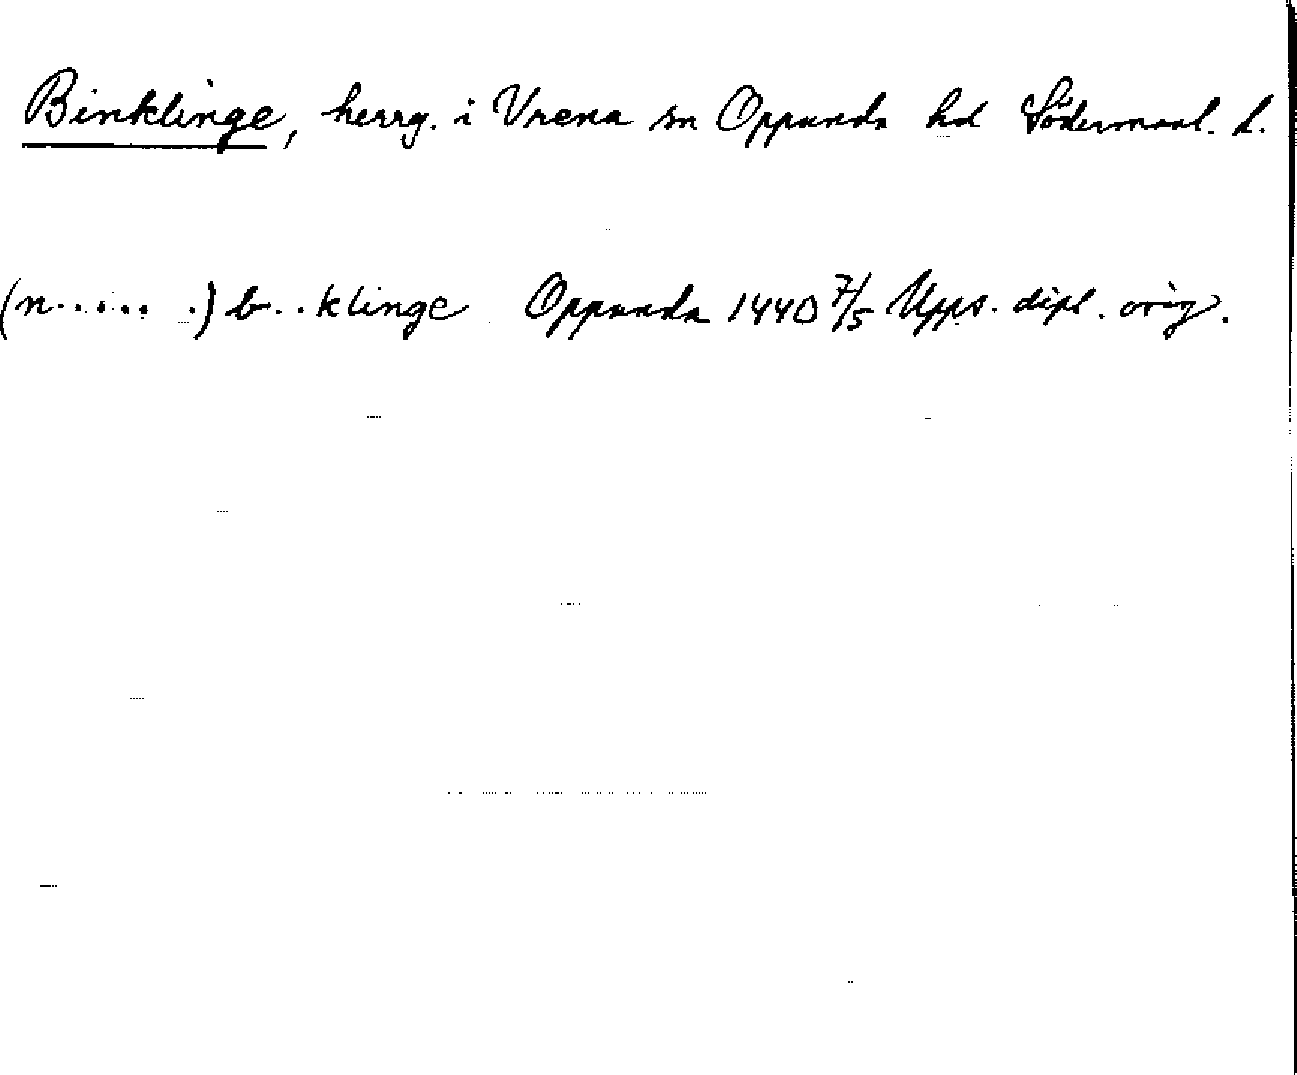 Binklinge, herrg. i Vrena sn Oppunda hd Södermanl. l.
(n..... .) b..klinge Oppunda 1440 7/5 Upps. dipl. orig.